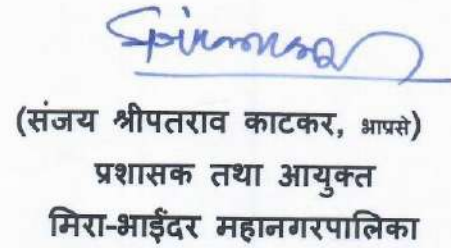 (संजय श्रीपतराव काटकर, भाप्रसे)
प्रशासक तथा आयुक्त
मिरा-भाईंदर महानगरपालिका